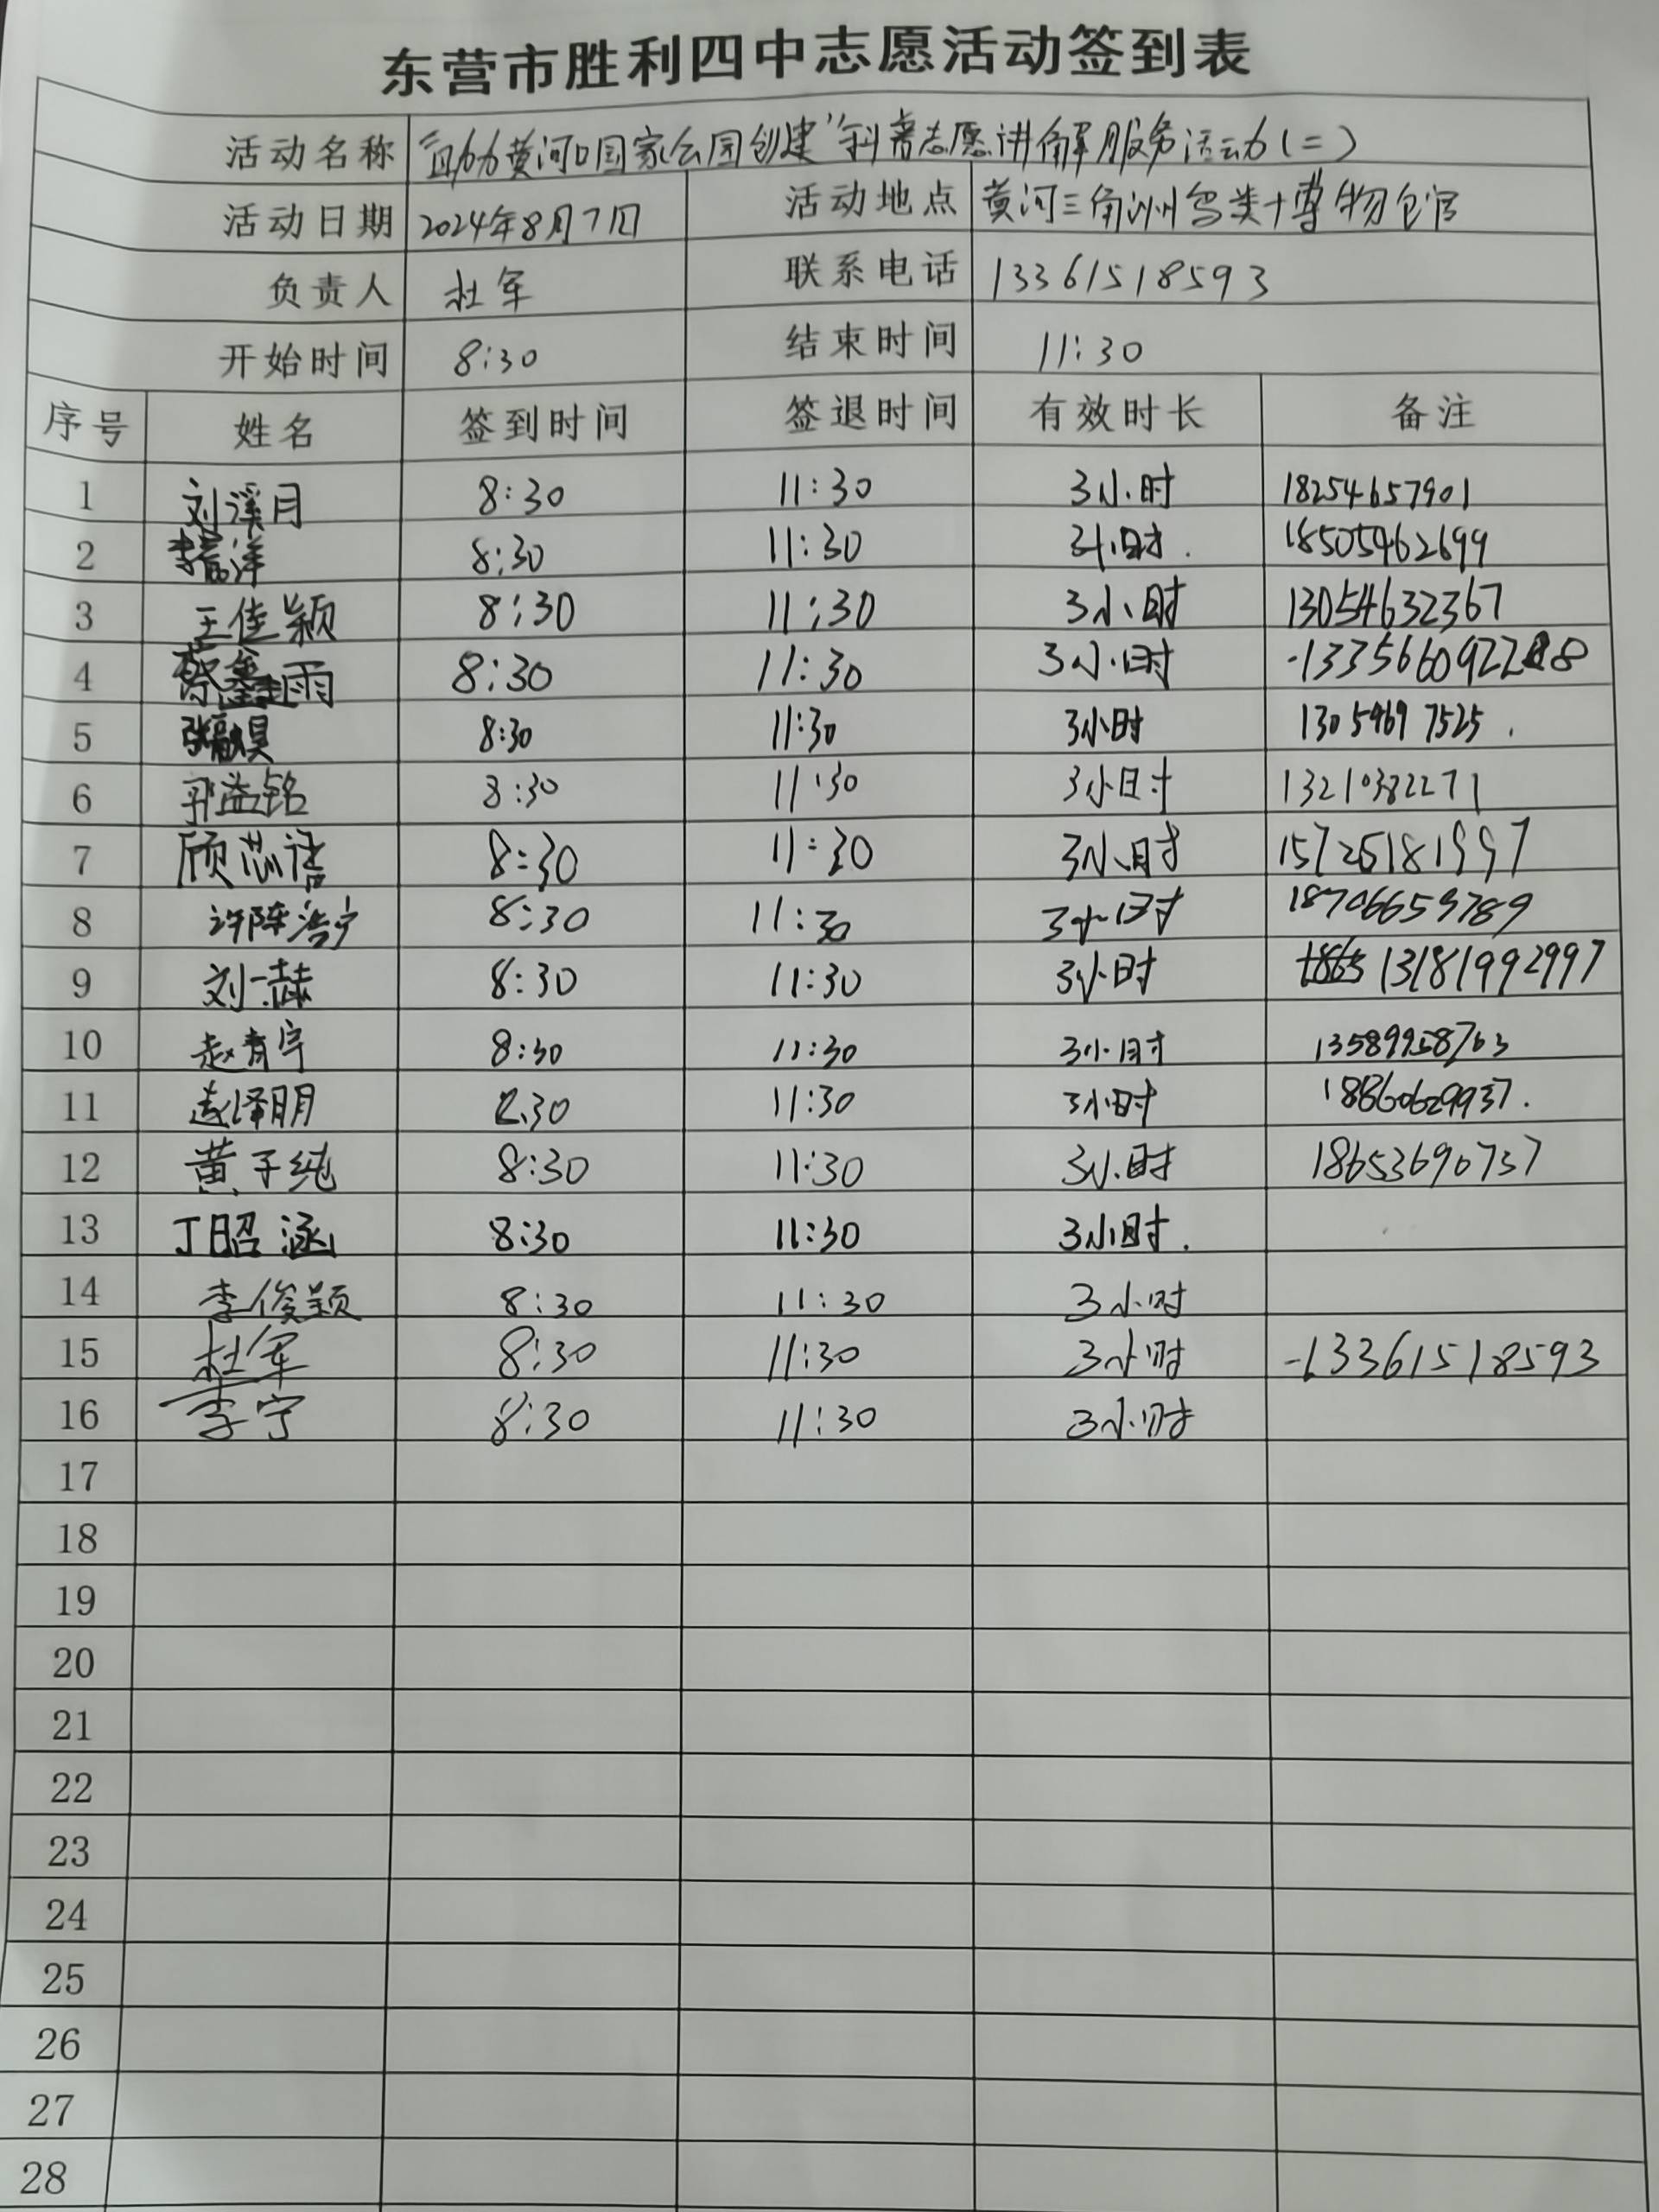 东营市胜利四中志愿活动签到表
活动名称 "助力黄河口国家公园创建"科普志愿讲解服务活动(二)
活动日期 2024年8月7日 活动地点 黄河三角洲鸟类博物馆
负责人 杜军 联系电话 13361518593
开始时间 8:30 结束时间 11:30
序号 姓名 签到时间 签退时间 有效时长 备注
1 刘溪月 8:30 11:30 3小时 18254657901
2 8:30 11:30 3小时. 18505462699
3 王佳颖 8:30 11:30 3小时 13054632367
4 雨 8:30 11:30 3小时
5 8:30 11:30 3小时 13054697525.
6 郭益铭 8:30 11:30 3小时 13210382271
7 顾芯语 8:30 11:30 3小时 15725181997
8 许陈浩宁 8:30 11:30 3小时 18706659789
9 刘一赫 8:30 11:30 3小时 13181992997
10 赵育宇 8:30 11:30 3小时 13589958763
11 8:30 11:30 3小时 18860629937.
12 黄子纯 8:30 11:30 3小时 18653690737
13 丁昭涵 8:30 11:30 3小时.
14 李俊颖 8:30 11:30 3小时
15 杜军 8:30 11:30 3小时 -13361518593
16 李宁 8:30 11:30 3小时
17
18
19
20
21
22
23
24
25
26
27
28